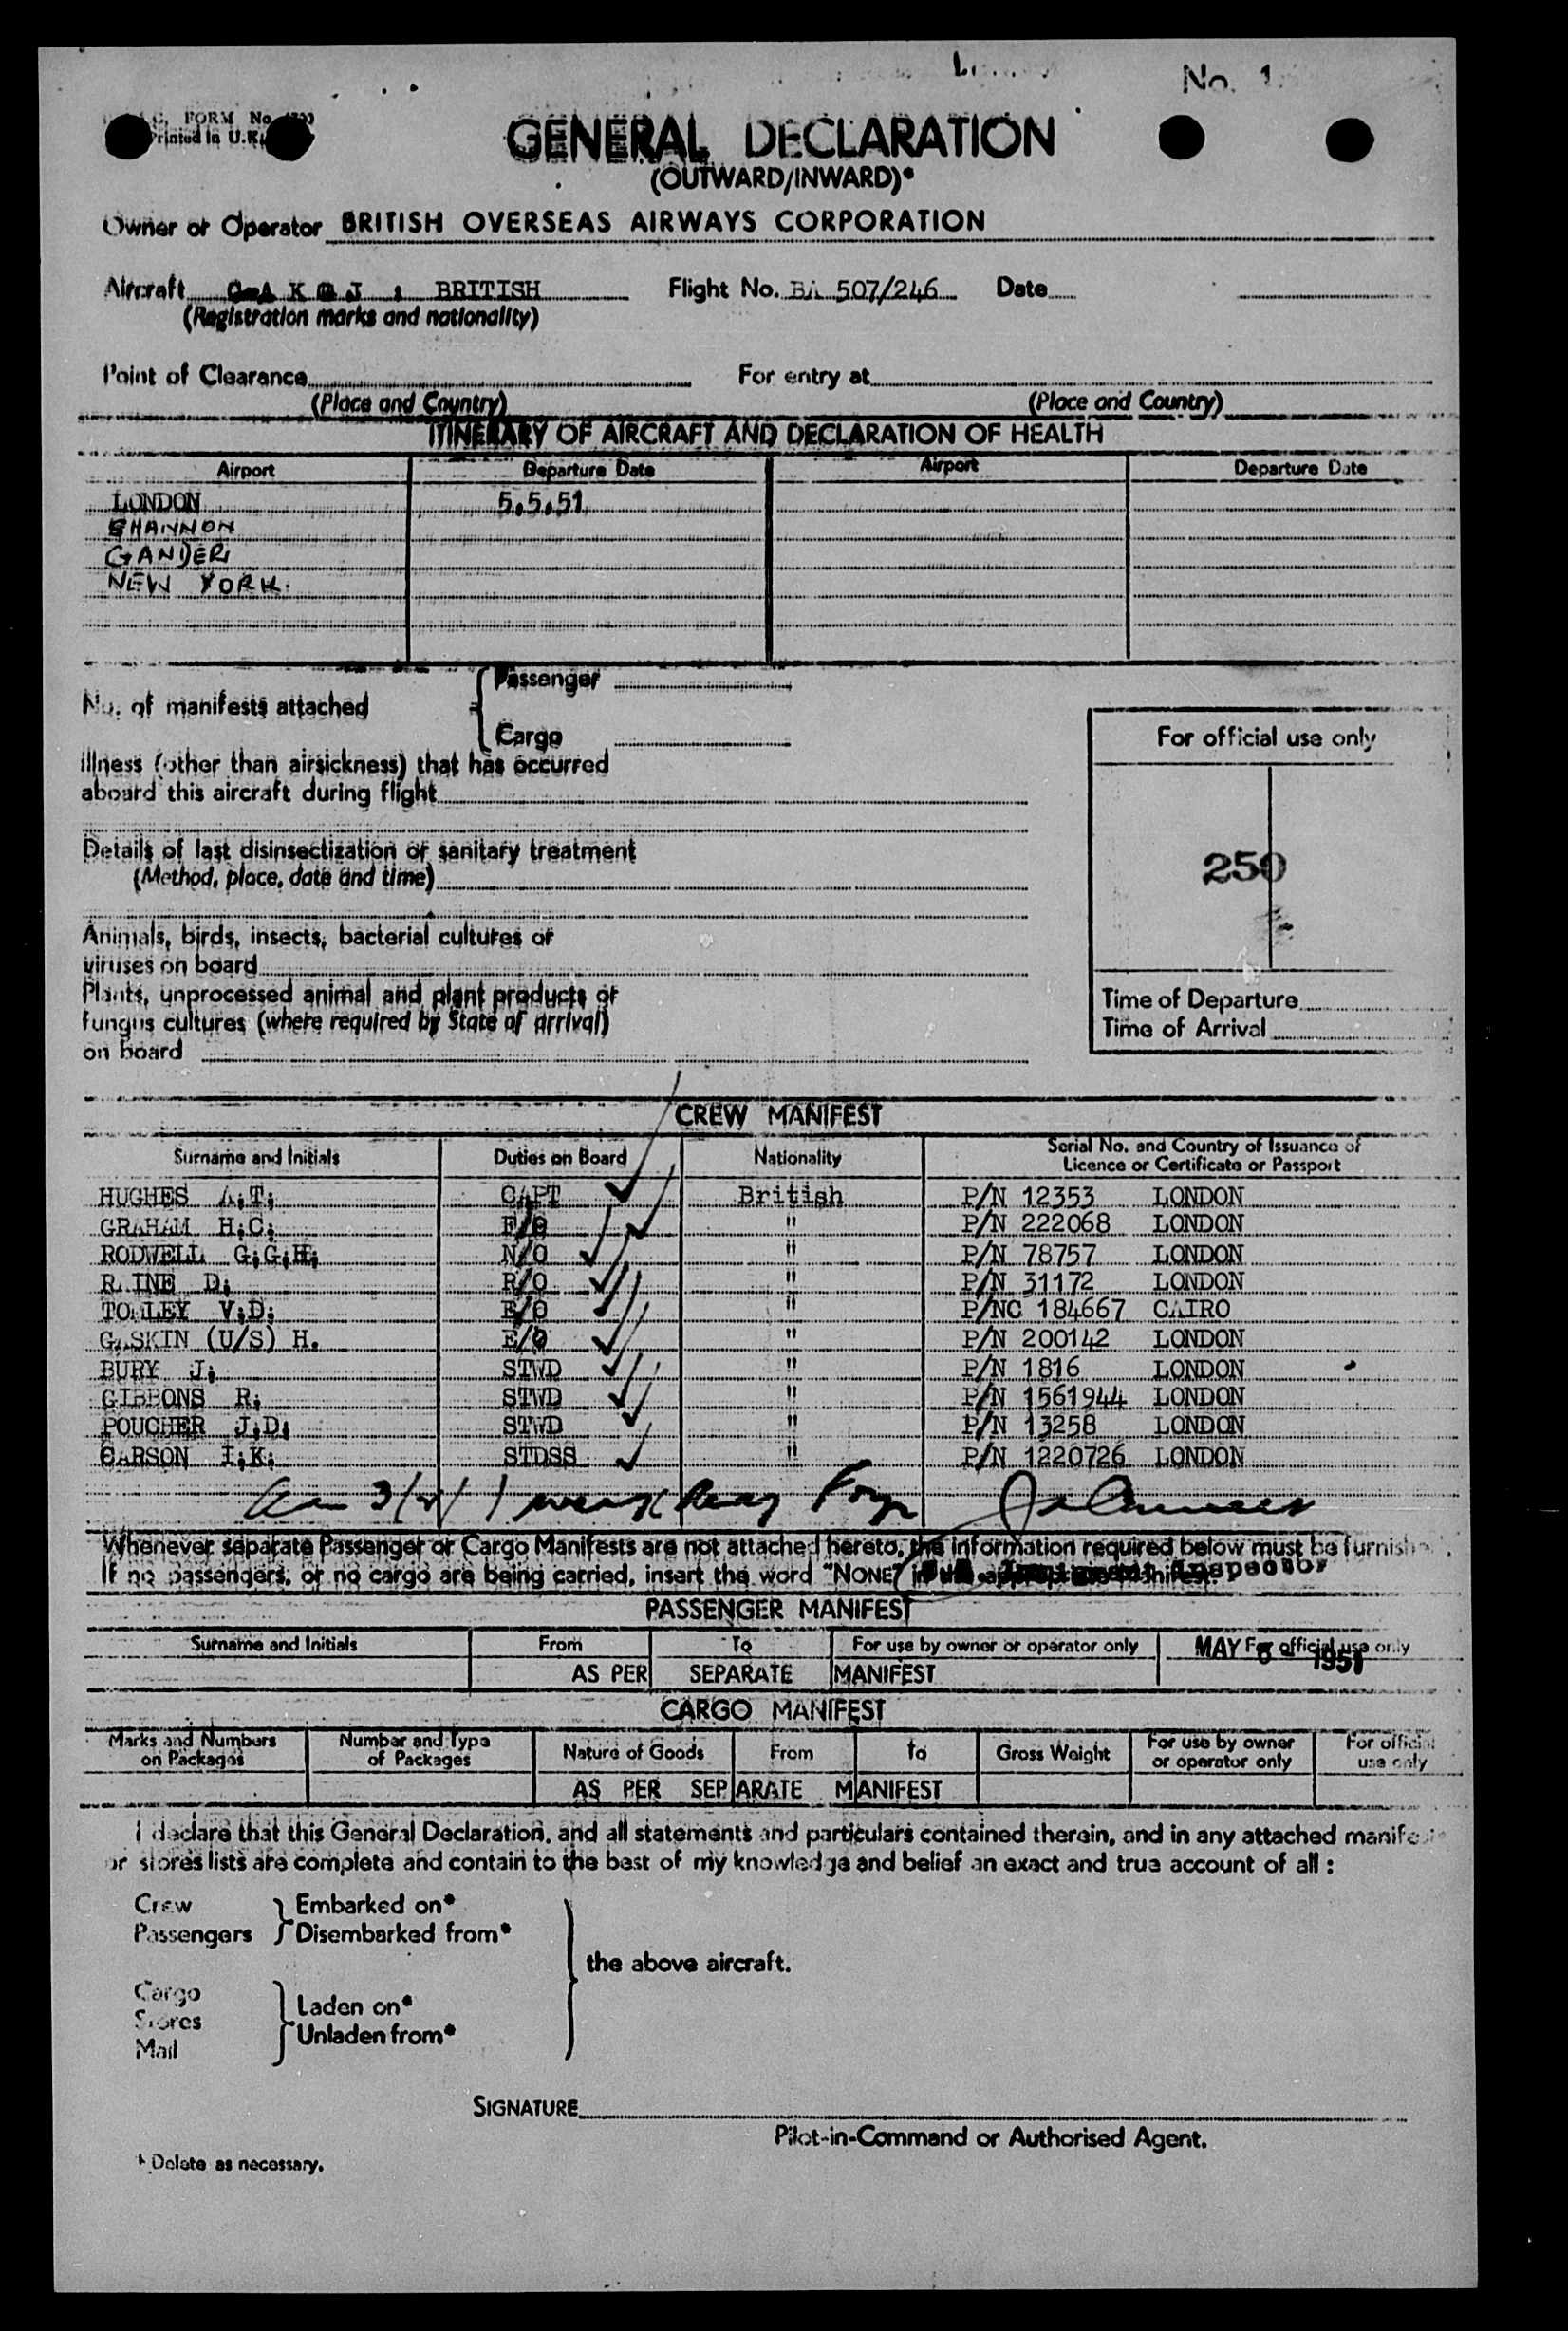 No. 1
FORM No
Printed in U.K.
GENERAL DECLARATION
(OUTWARD/INWARD)*
Owner or Operator BRITISH OVERSEAS AIRWAYS CORPORATION
Aircraft BRITISH Flight No. BA 507/246 Date
(Registration marks and nationality)
Point of Clearance For entry at
(Place and Country) (Place and Country)
ITINERARY OF AIRCRAFT AND DECLARATION OF HEALTH
Airport Departure Date Airport Departure Date
LONDON 5.5.51
SHANNON
GANDER
NEW YORK.
No. of manifests attached { Passenger
Cargo
For official use only
Illness (other than airsickness) that has occurred
aboard this aircraft during flight
Details of last disinsectization or sanitary treatment
(Method, place, date and time)
250
Animals, birds, insects, bacterial cultures or
viruses on board
Plants, unprocessed animal and plant products or
fungus cultures (where required by State of arrival)
on board
Time of Departure
Time of Arrival
CREW MANIFEST
Surname and Initials Duties on Board Nationality Serial No. and Country of Issuance of
Licence or Certificate or Passport
HUGHES A.T. CAPT British P/N 12353 LONDON
GRAHAM H.C. F/O " P/N 222068 LONDON
RODWELL G.G.H. N/O " P/N 78757 LONDON
RAINE D. R/O " P/N 31172 LONDON
V.D. E/O " P/NC 184667 CAIRO
GASKIN (U/S) H. E/O " P/N 200142 LONDON
BURY J. STWD " P/N 1816 LONDON
GIBBONS R. STWD " P/N 1561944 LONDON
POUCHER J.D. STWD " P/N 13258 LONDON
CARSON I.K. STDSS " P/N 1220726 LONDON
Whenever separate Passenger or Cargo Manifests are not attached hereto, the information required below must be furnished.
If no passengers, or no cargo are being carried, insert the word "NONE" in the appropriate Manifest.
Immigrant Inspector
PASSENGER MANIFEST
Surname and Initials From To For use by owner or operator only For official use only
MAY 6 1951
AS PER SEPARATE MANIFEST
CARGO MANIFEST
Marks and Numbers on Packages Number and Type of Packages Nature of Goods From To Gross Weight For use by owner or operator only For official use only
AS PER SEPARATE MANIFEST
I declare that this General Declaration, and all statements and particulars contained therein, and in any attached manifests
or stores lists are complete and contain to the best of my knowledge and belief an exact and true account of all :
Crew } Embarked on*
Passengers } Disembarked from*
the above aircraft.
Cargo
Stores } Laden on*
Mail } Unladen from*
SIGNATURE
Pilot-in-Command or Authorised Agent.
* Delete as necessary.